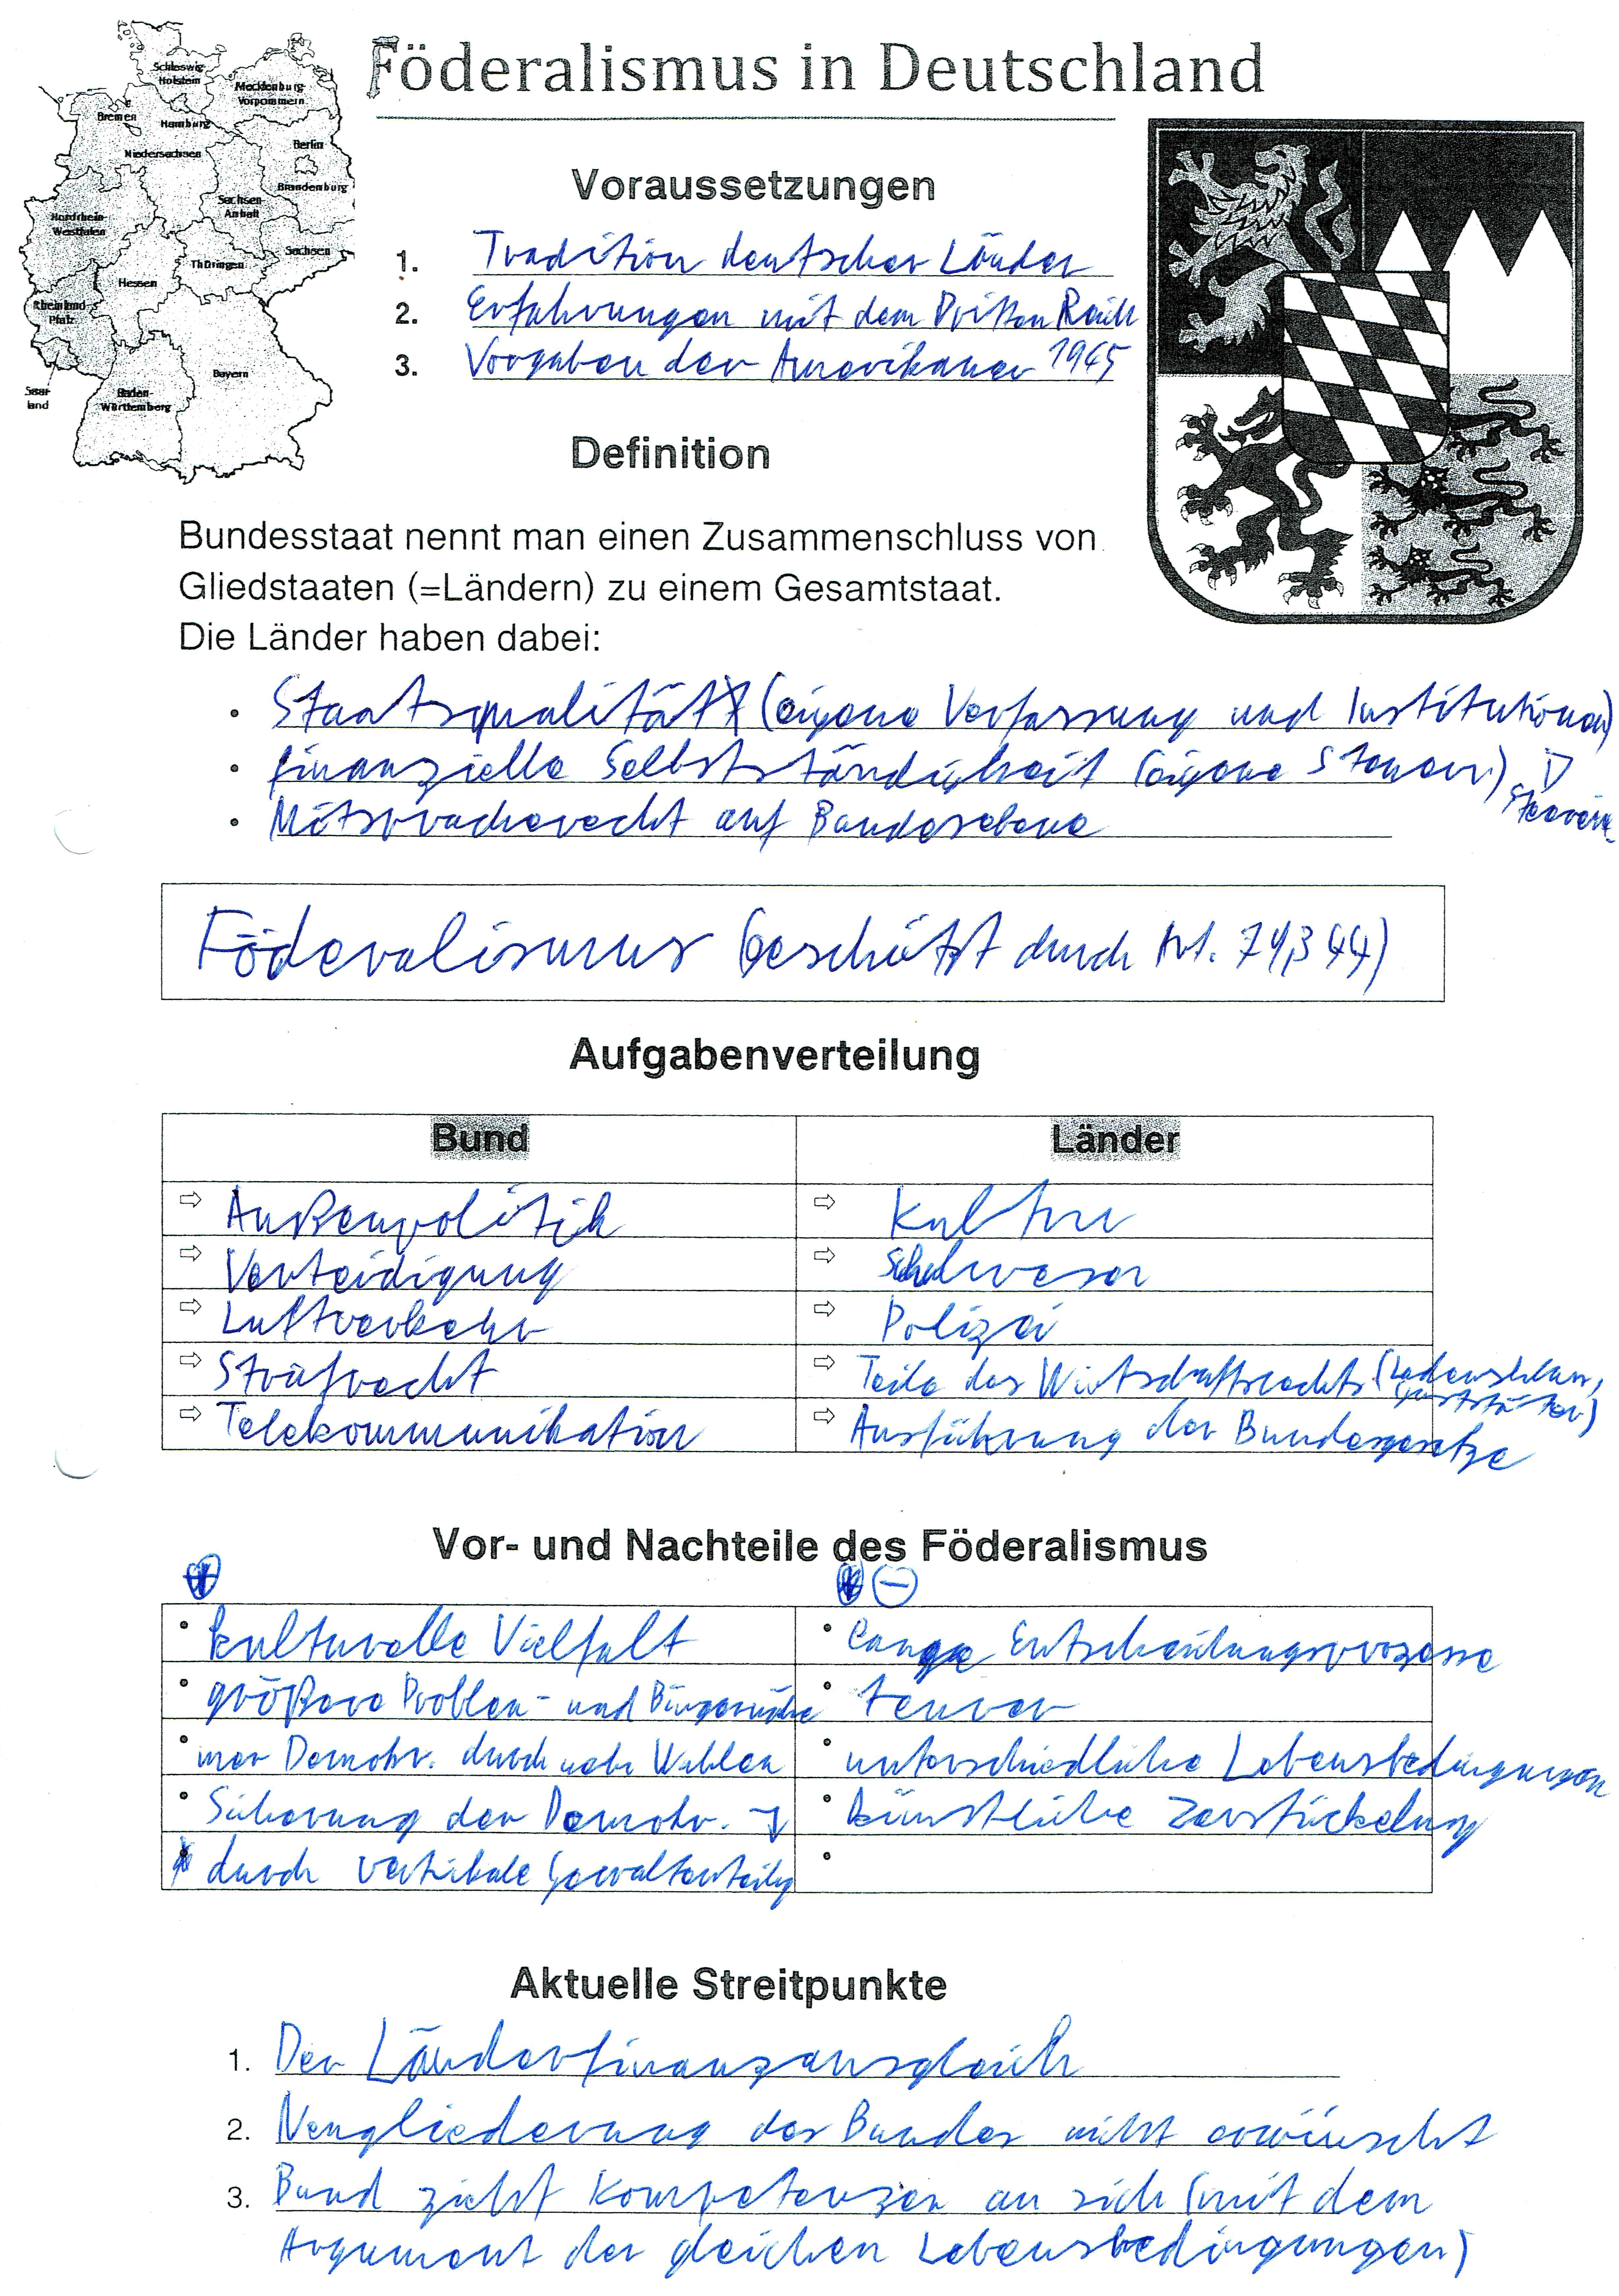 Föderalismus in Deutschland
Schleswig-
Holstein
Mecklenburg-
Vorpommern
Bremen
Hamburg
Niedersachsen
Berlin
Brandenburg
Sachsen-
Anhalt
Nordrhein-
Westfalen
Sachsen
Thüringen
Hessen
Rheinland-
Pfalz
Bayern
Saar-
land
Baden-
Württemberg
Voraussetzungen
1. Tradition deutscher Länder
2. Erfahrungen mit dem Dritten Reich
3. Vorgaben der Amerikaner 1945
Definition
Bundesstaat nennt man einen Zusammenschluss von
Gliedstaaten (=Ländern) zu einem Gesamtstaat.
Die Länder haben dabei:
• Staatsqualität (eigene Verfassung und Institutionen)
• finanzielle Selbstständigkeit (eigene Steuern)
• Mitspracherecht auf Bundesebene
Föderalismus (geschützt durch Art. 79,3 GG)
Aufgabenverteilung
Bund Länder
⇨ Außenpolitik ⇨ Kultur
⇨ Verteidigung ⇨ Schulwesen
⇨ Luftverkehr ⇨ Polizei
⇨ Strafrecht ⇨ Teile des Wirtschaftsrechts (Ladenschluss,
Gaststätten)
⇨ Telekommunikation ⇨ Ausführung der Bundesgesetze
Vor- und Nachteile des Föderalismus
+ –
• kulturelle Vielfalt • lange Entscheidungsprozesse
• größere Problem- und Bürgernähe • teurer
• mer Demokr. durch mehr Wahlen • unterschiedliche Lebensbedingungen
• Sicherung der Demokr. • künstliche Zerstückelung
durch vertikale Gewaltenteilg •
Aktuelle Streitpunkte
1. Der Länderfinanzausgleich
2. Neugliederung des Bundes nicht erwünscht
3. Bund zieht Kompetenzen an sich (mit dem
Argument der gleichen Lebensbedingungen)